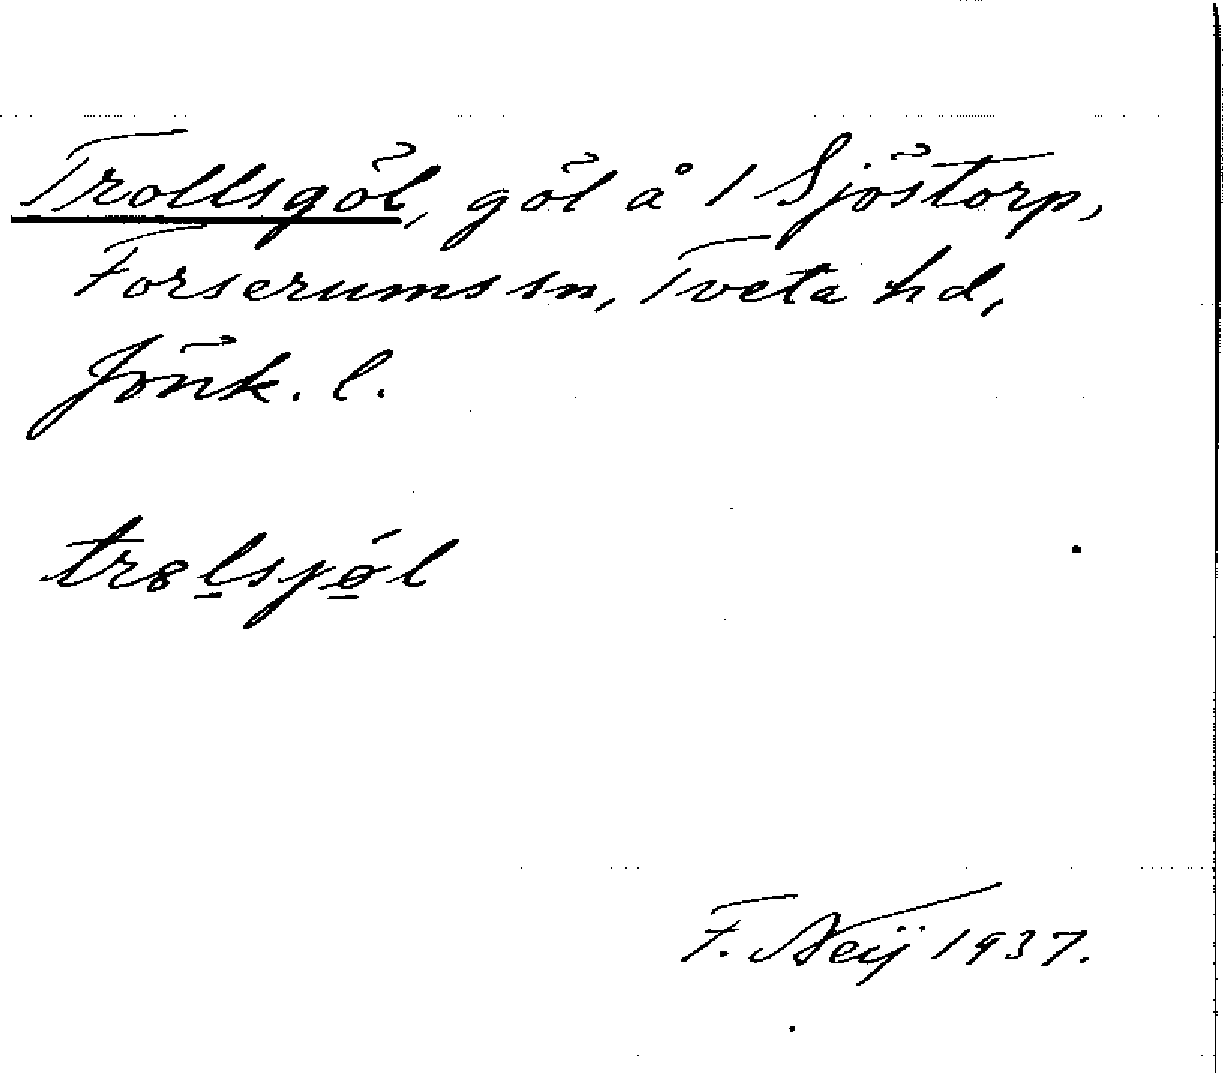 Trollsgöl, göl å 1 Sjöstorp,
Forserums sn, Tveta hd,
Jönk. l.
trol̲sjǿ̲l
F. Neij 1937.